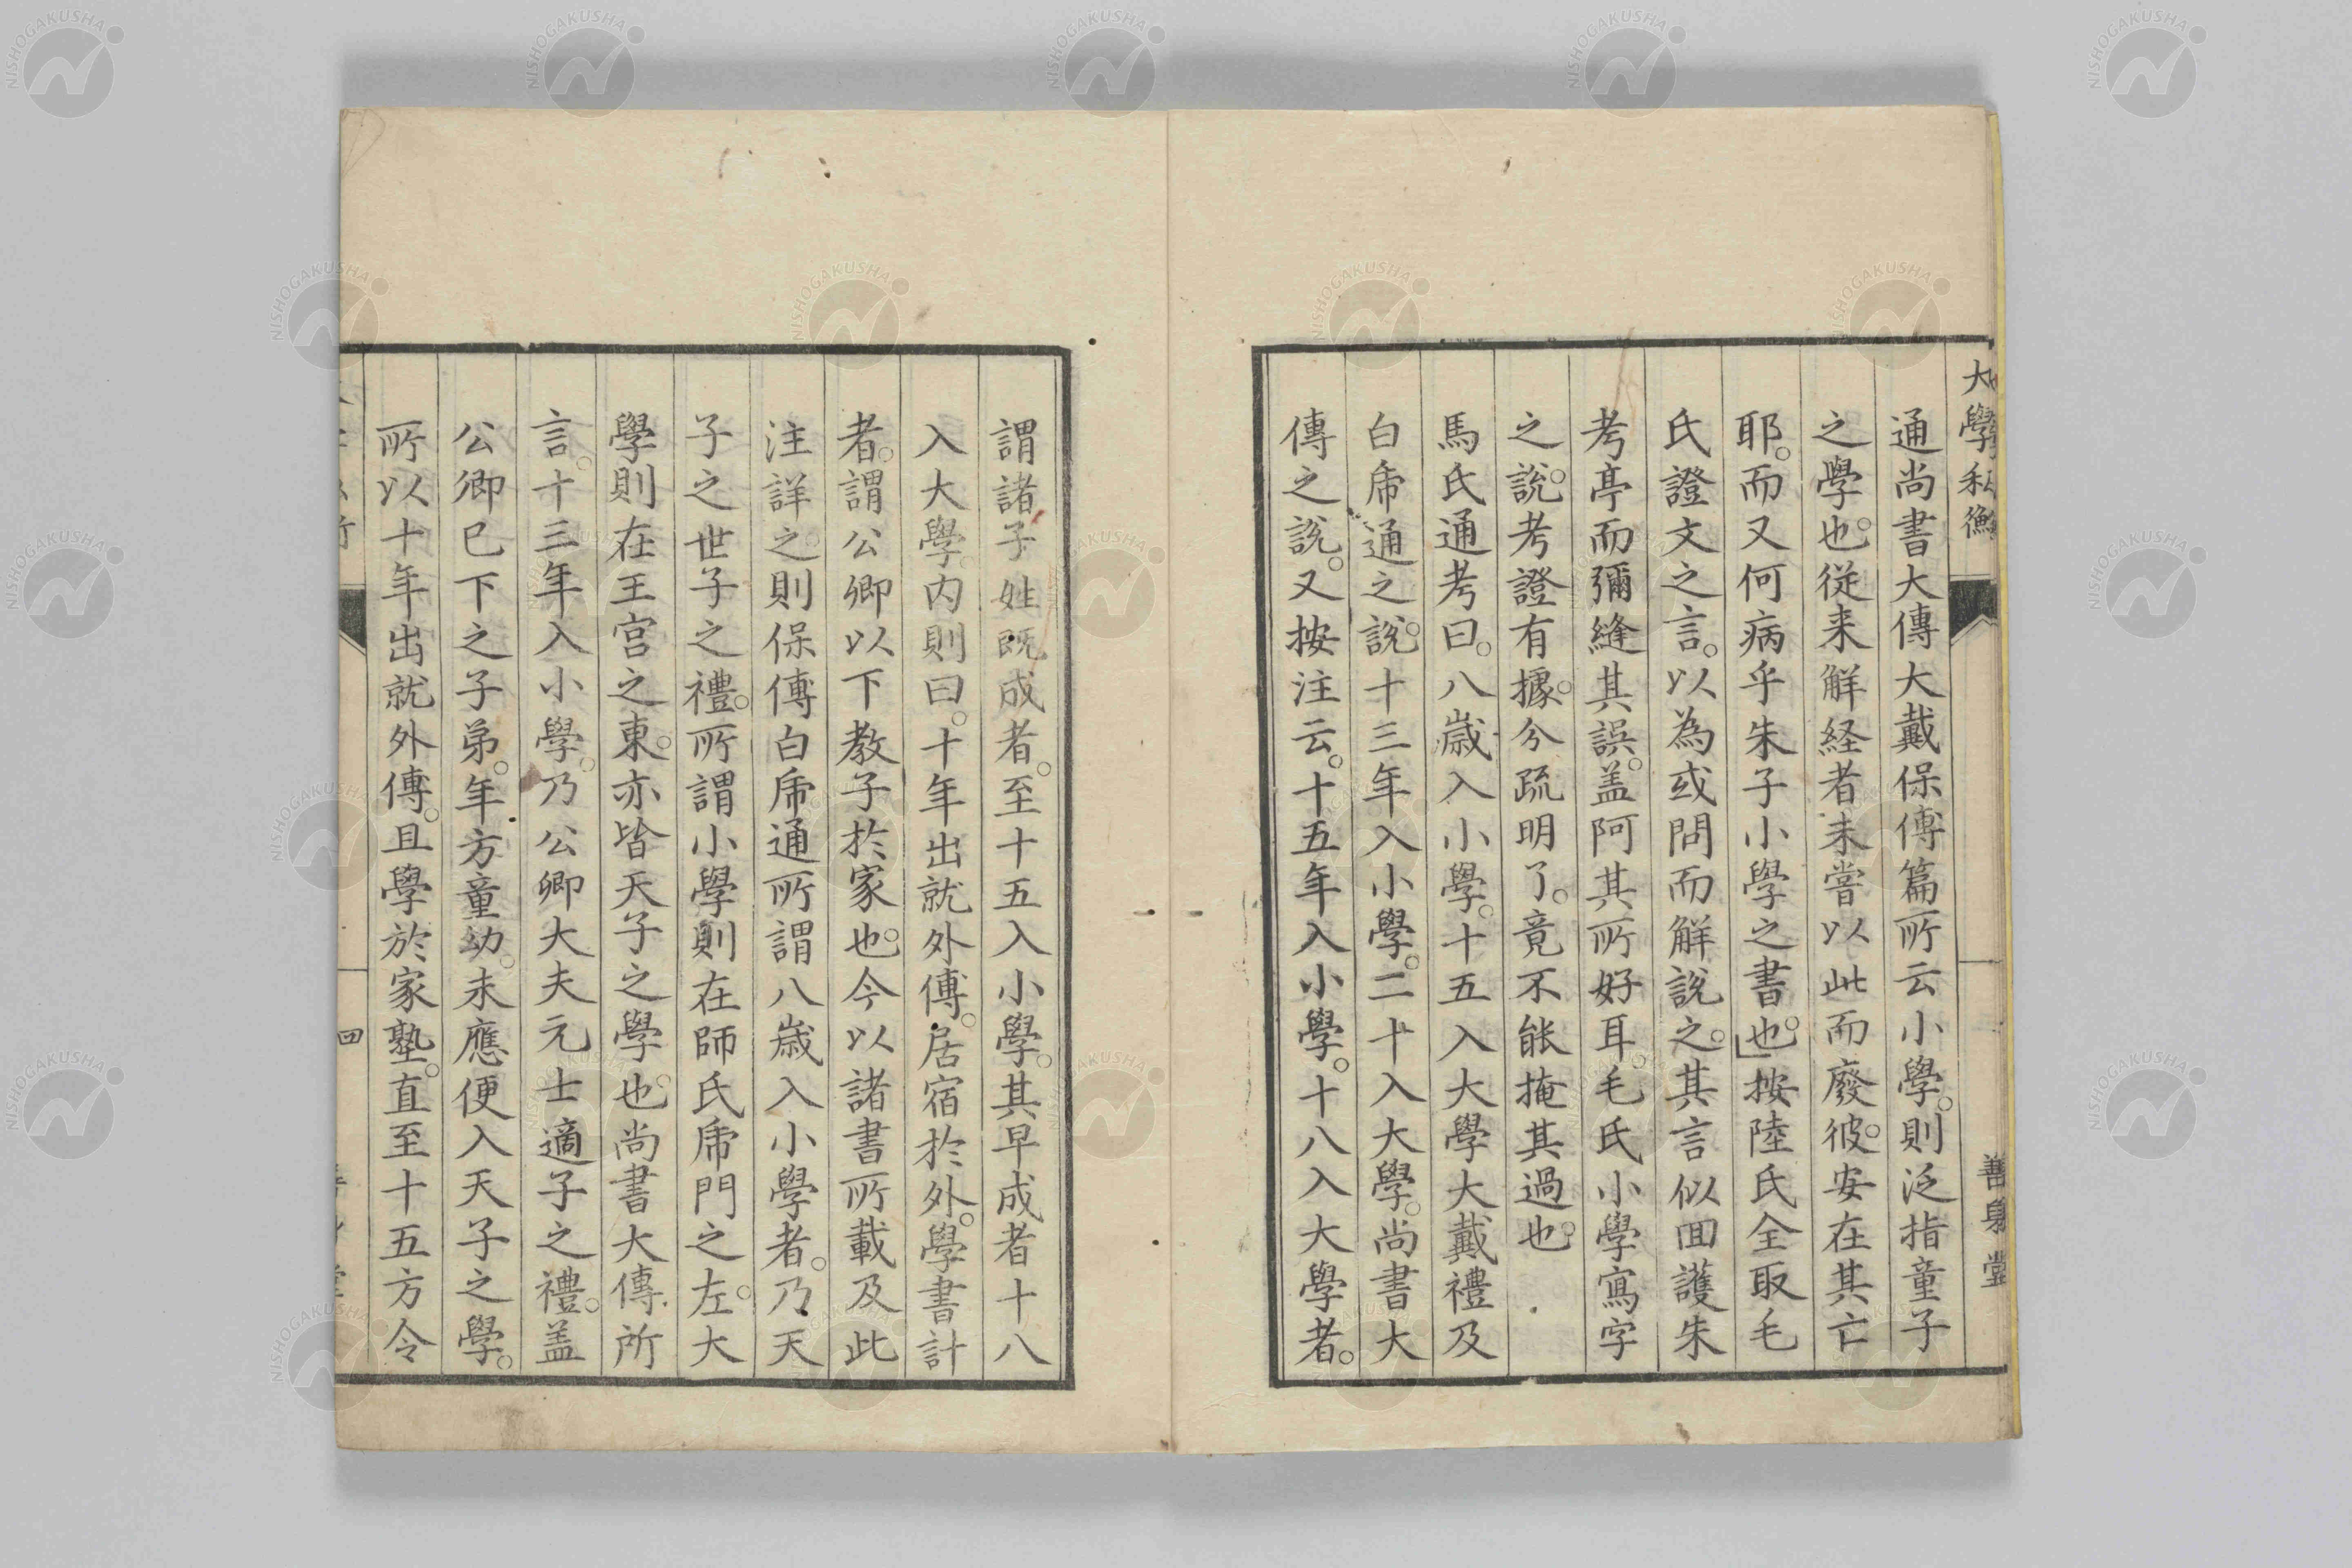 大學私衡
善身堂
通尚書大傳大戴保傅篇所云小學。則泛指童子
之學也。從来解経者未嘗以此而廢彼。安在其亡
耶。而又何病乎朱子小學之書也。」按陸氏全取毛
氏證文之言。以為或問而解説之。其言似回護朱
考亭而彌縫其誤。盖阿其所好耳。毛氏小學寫字
之説。考證有據。分疏明了。竟不能掩其過也。
馬氏通考曰。八歳入小學。十五入大學大戴禮及
白席通之説。十三年入小學。二十入大學。尚書大
傳之説。又按注云。十五年入小學。十八入大學者。
謂諸子姓既成者。至十五入小學。其早成者十八
入大學。内則曰。十年出就外傅。居宿於外。學書計
者。謂公卿以下教子於家也。今以諸書所載及此
注詳之。則保傅白席通所謂八歳入小學者。乃天
子之世子之禮。所謂小學則在師氏席門之左。大
學則在王宮之東。亦皆天子之學也。尚書大傳所
言。十三年入小學。乃公卿大夫元士適子之禮。盖
公卿已下之子弟。年方童幼。未應便入天子之學。
所以十年出就外傅。且學於家塾。直至十五方令
四
NISHOGAKUSHA